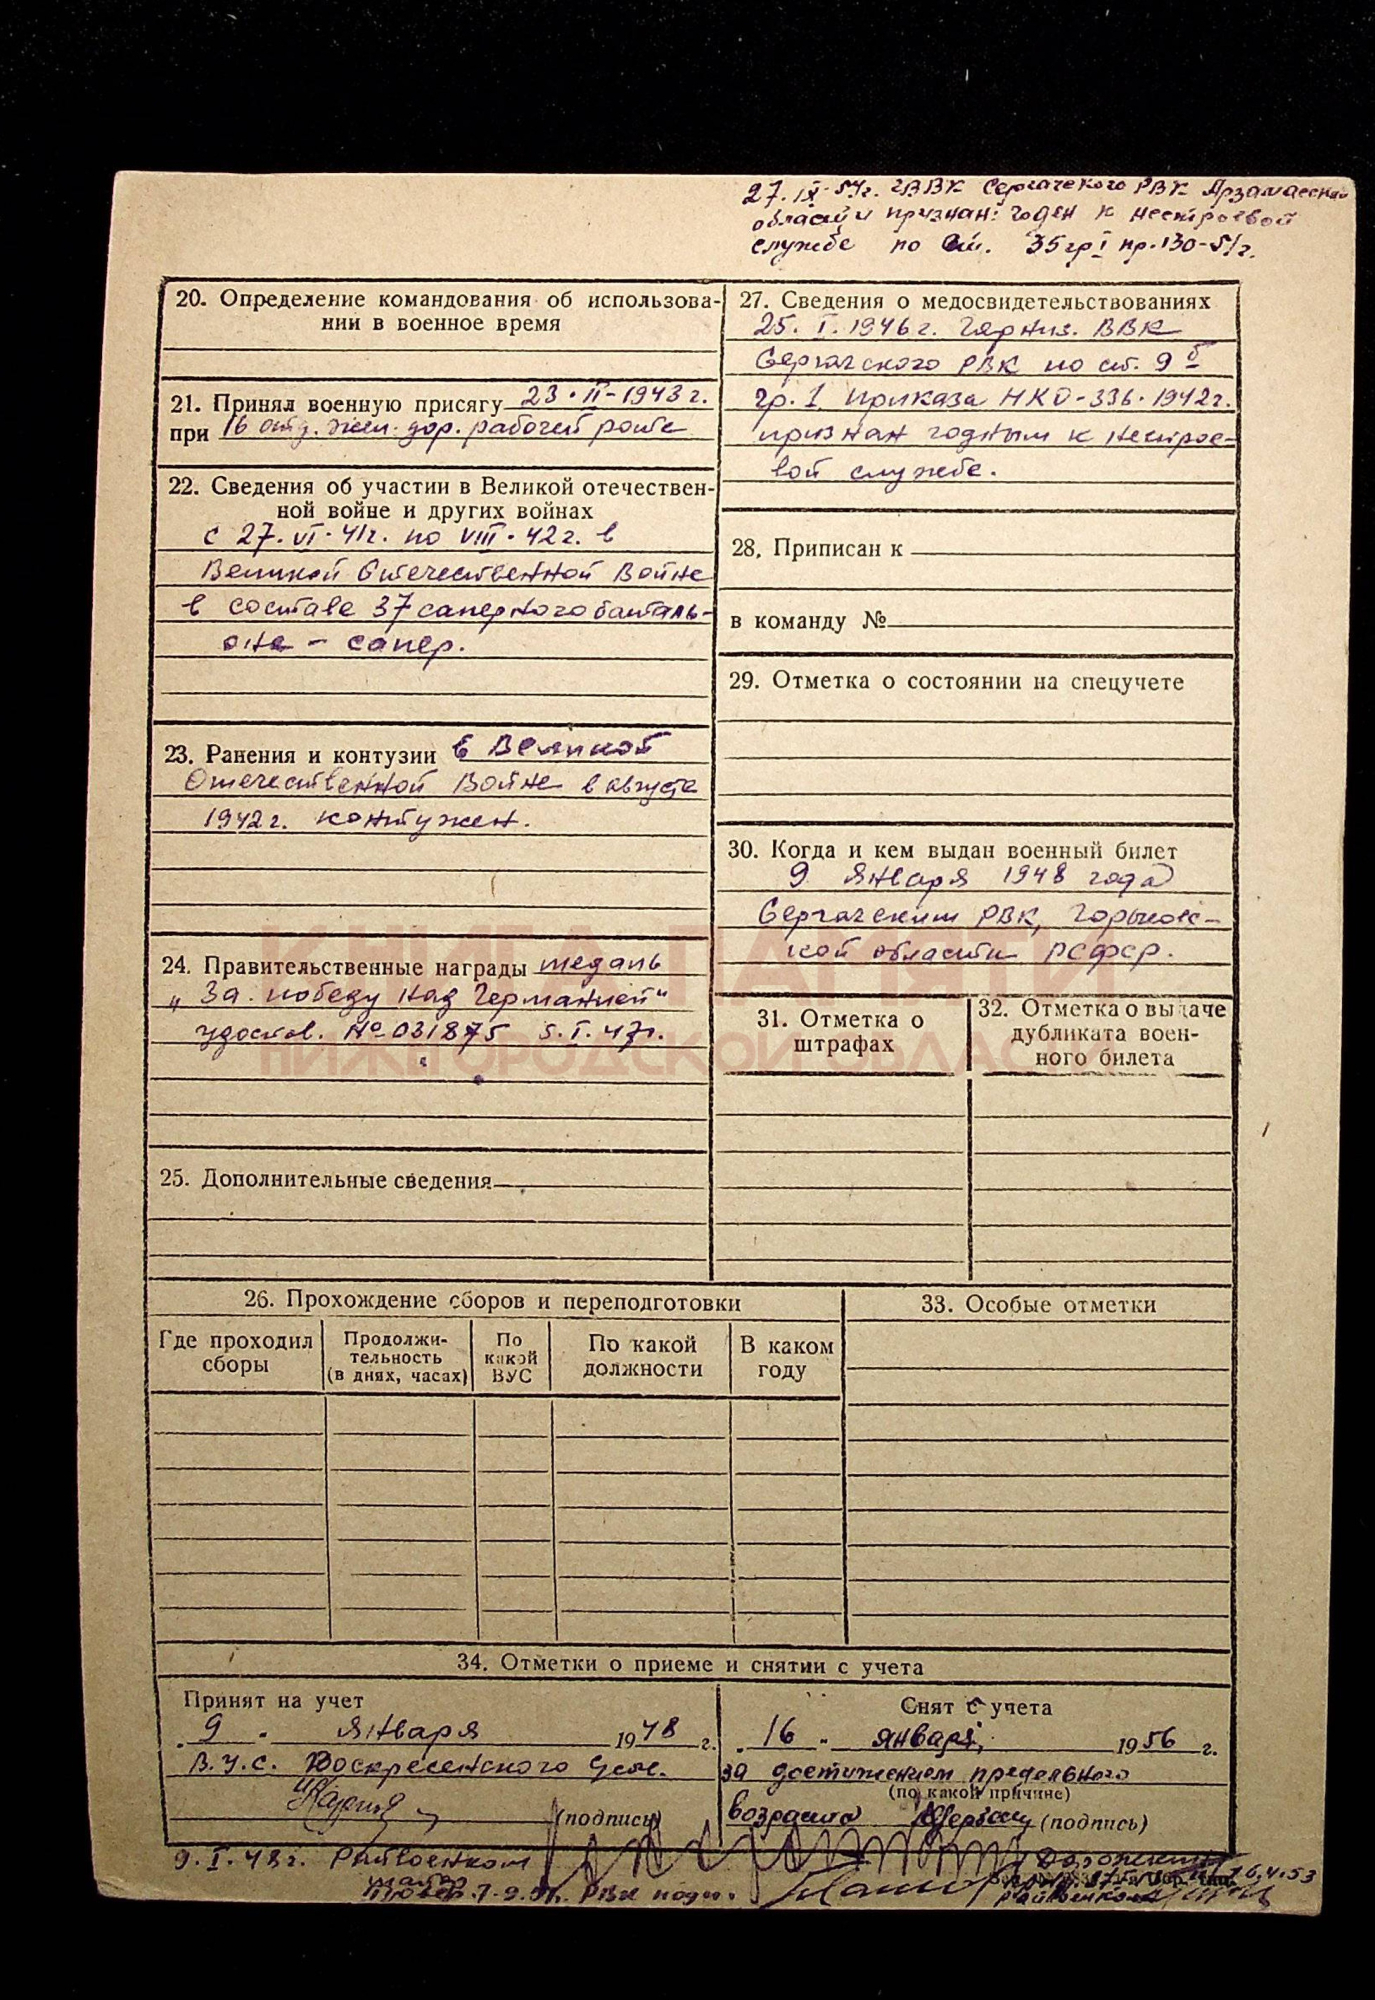 27.IX-51г. ГВВК Сергачского РВК Арзамасской
области признан: годен к нестроевой
службе по ст. 35 гр I пр.130-51г.
20. Определение командования об использова-
нии в военное время
21. Принял военную присягу 23.II-1943г.
при 16 отд. жел. дор. рабочей роте
22. Сведения об участии в Великой отечествен-
ной войне и других войнах
с 27.VI.41г. по VIII.42г. в
Великой Отечественной Войне
в составе 37 саперного баталь-
она - сапер.
23. Ранения и контузии в Великой
Отечественной Войне в августе
1942г. контужен.
24. Правительственные награды медаль
„За победу над Германией"
удостов. № 031875 5.I.47г.
25. Дополнительные сведения
27. Сведения о медосвидетельствованиях
25.I.1946г. Гарниз. ВВК
Сергачского РВК по ст. 9 б
гр. I приказа НКО-336-1942г.
признан годным к нестрое-
вой службе.
28. Приписан к
в команду №
29. Отметка о состоянии на спецучете
30. Когда и кем выдан военный билет
9 января 1948 года
Сергачским РВК, Горьков-
ской области РСФСР.
31. Отметка о
штрафах
32. Отметка о выдаче
дубликата воен-
ного билета
КНИГА ПАМЯТИ
НИЖЕГОРОДСКОЙ ОБЛАСТИ
26. Прохождение сборов и переподготовки
Где проходил
сборы
Продолжи-
тельность
(в днях, часах)
По
какой
ВУС
По какой
должности
В каком
году
33. Особые отметки
34. Отметки о приеме и снятии с учета
Принят на учет
„9" января 1948 г.
В.У.С. Воскресенского
(подпись)
Снят с учета
„16" января 1956 г.
за достижением предельного
(по какой причине)
возраста (подпись)
9.I.48г. Райвоенком
майор
РВК
райвоенком 16.4.53